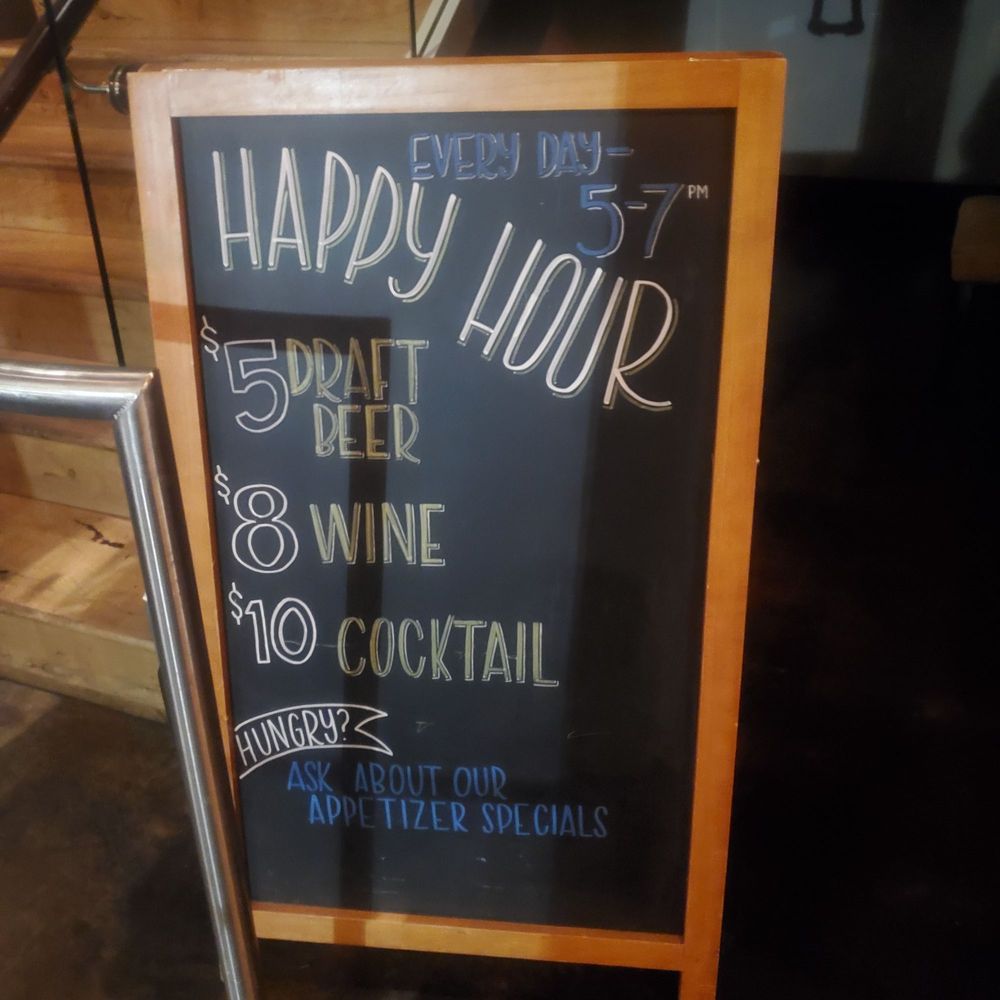 EVERY DAY-
5-7PM
HAPPY HOUR
$5 DRAFT
BEER
$8 WINE
$10 COCKTAIL
HUNGRY?
ASK ABOUT OUR
APPETIZER SPECIALS